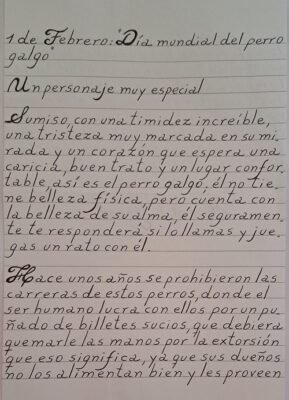 1 de Febrero: "Día mundial del perro
galgo"
Un personaje muy especial
Sumiso, con una timidez increíble,
una tristeza muy marcada en su mi-
rada y un corazón que espera una
caricia, buen trato y un lugar confor-
table, así es el perro galgo, él no tie-
ne belleza física, pero cuenta con
la belleza de su alma, él seguramen-
te te responderá si lo llamas y jue-
gas un rato con él.
Hace unos años se prohibieron las
carreras de estos perros, donde el
ser humano lucra con ellos por un pu-
ñado de billetes sucios, que debiera
quemarle las manos por la extorsión
que eso significa, ya que sus dueños
no los alimentan bien y les proveen